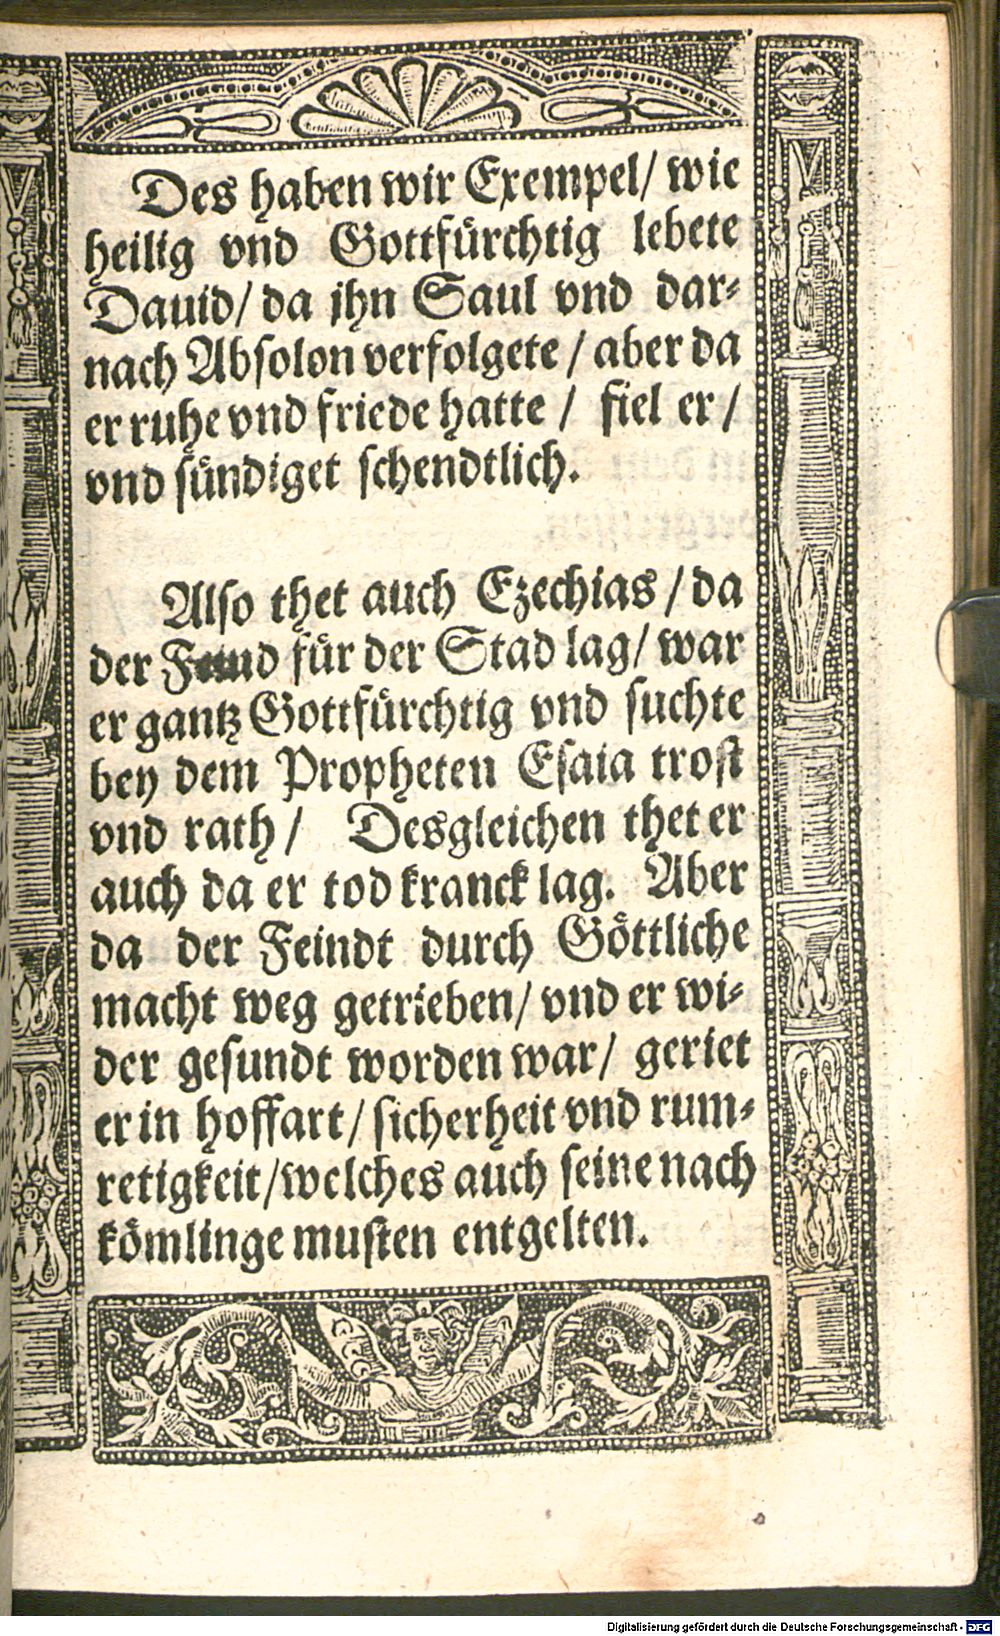 Des haben wir Exempel/ wie
heilig vnd Gottfürchtig lebete
Dauid/ da jhn Saul vnd dar⸗
nach Absolon verfolgete / aber da
er ruhe vnd friede hatte / fiel er/
vnd sündiget schendtlich.
Also thet auch Ezechias / da
der Feind für der Stad lag/ war
er gantz Gottfürchtig vnd suchte
bey dem Propheten Esaia trost
vnd rath/ Desgleichen thet er
auch da er tod kranck lag. Aber
da der Feindt durch Göttliche
macht weg getrieben/ vnd er wi⸗
der gesundt worden war/ geriet
er in hoffart/ sicherheit vnd rum⸗
retigkeit/welches auch seine nach
kömlinge musten entgelten.
Digitalisierung gefördert durch die Deutsche Forschungsgemeinschaft - DFG